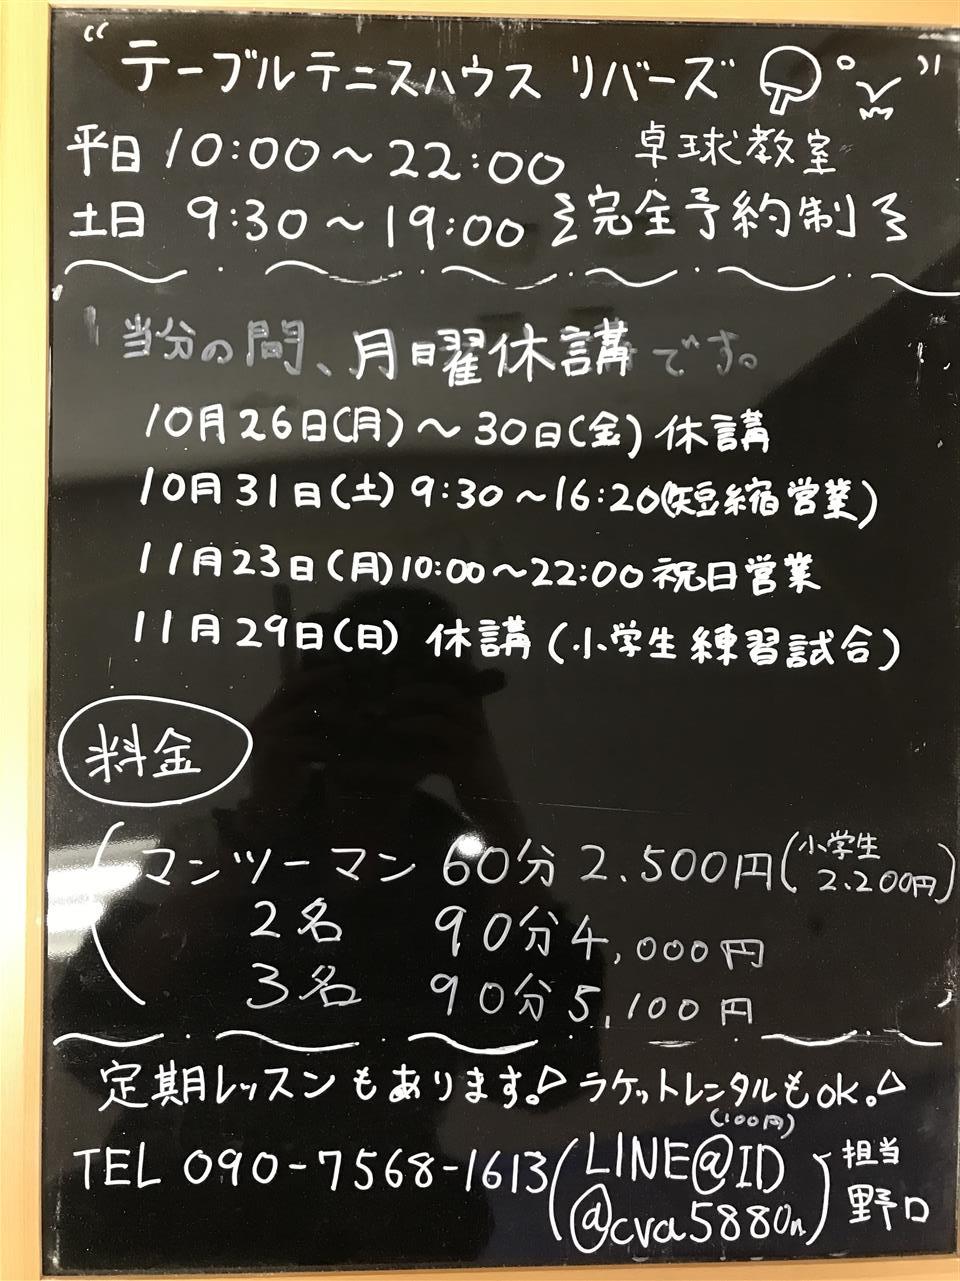 “テーブルテニスハウス リバーズ”
平日 10:00～22:00 卓球教室
土日 9:30～19:00 完全予約制
当分の間、月曜休講です。
10月26日(月)～30日(金) 休講
10月31日(土) 9:30～16:20(短縮営業)
11月23日(月)10:00～22:00 祝日営業
11月29日(日) 休講 (小学生練習試合)
料金
マンツーマン 60分 2.500円(小学生 2.200円)
2名 90分 4,000円
3名 90分 5,100円
定期レッスンもあります。ラケットレンタルもOK。
(100円)
TEL 090-7568-1613 (LINE@ID @cva5880n) 担当 野口